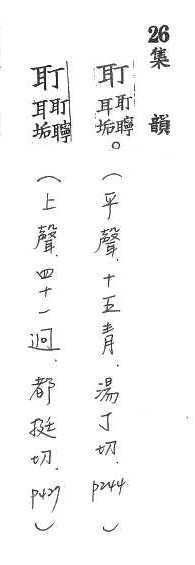 26集韻
耵耵聹耳垢。(平聲.十五青.湯丁切.p244)
耵耵聹耳垢(上聲.四十一迥.都挺切.p427)